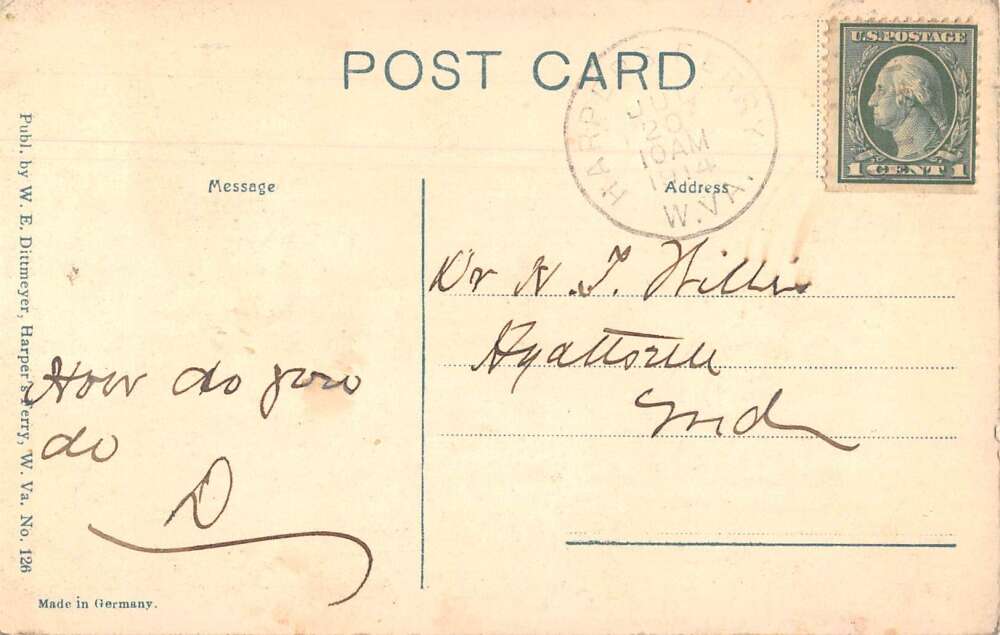 POST CARD
HARPERS FERRY
20
10 AM
1914
W. VA.
U.S. POSTAGE
1 CENT 1
Message
Address
Dr H. T. Willis
Hyattsville
Md
How do you
do
D
Publ. by W. E. Dittmeyer, Harper's Ferry, W. Va. No. 126
Made in Germany.